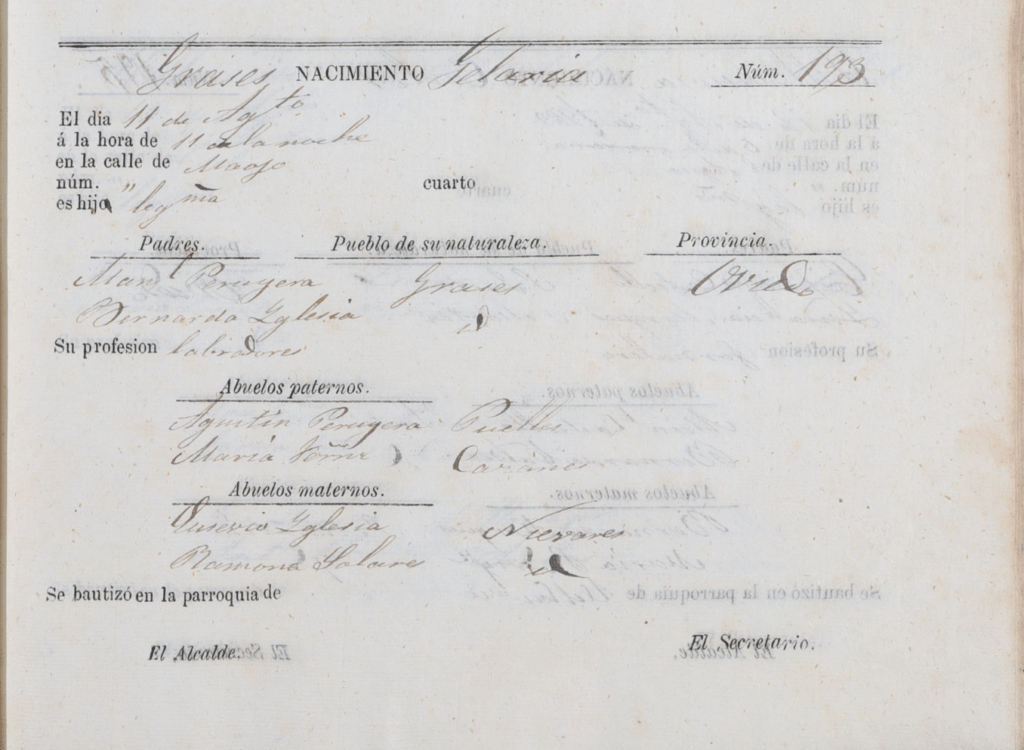 Grases NACIMIENTO Núm. 193
El dia 11 de Agto
á la hora de 11 de la noche
en la calle de
núm. " cuarto
es hija legma
Padres. Pueblo de su naturaleza. Provincia.
Manl Perugera Grases Ovdo
Bernarda Yglesia id
Su profesion labradores
Abuelos paternos.
Agustin Perugera Puelles
Maria
Abuelos maternos.
Eusevio Yglesia Nievares
Ramona Solares id
Se bautizó en la parroquia de
El Alcalde. El Secretario.